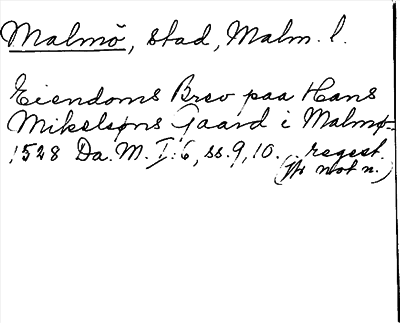 Malmö, stad, Malm. l.
Eiendoms Brev paa Hans
Mikelsøns Gaard i Malmø
1528 Da. M. I:6, ss. 9, 10. regest.
( not n.)